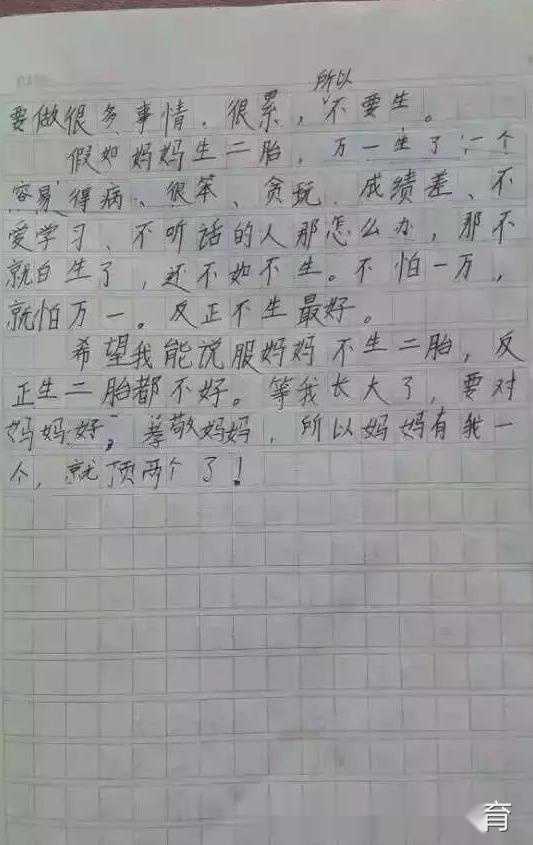 所以
要做很多事情，很累，不要生。
假如妈妈生二胎，万一生了一个
容易得病、很笨、贪玩、成绩差、不
爱学习、不听话的人那怎么办，那不
就白生了，还不如不生。不怕一万，
就怕万一。反正不生最好。
希望我能说服妈妈不生二胎，反
正生二胎都不好。等我长大了，要对
妈妈好，孝敬妈妈，所以妈妈有我一
个，就顶两个了！
育